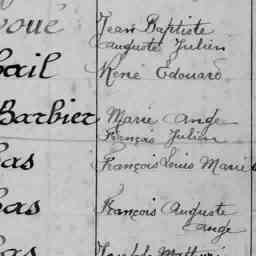 Jean Baptiste
auguste Julien
bail René Édouard
Barbier Marie Ange
François Julien
bas François Louis Marie
bas François Auguste
ange
bas Joseph